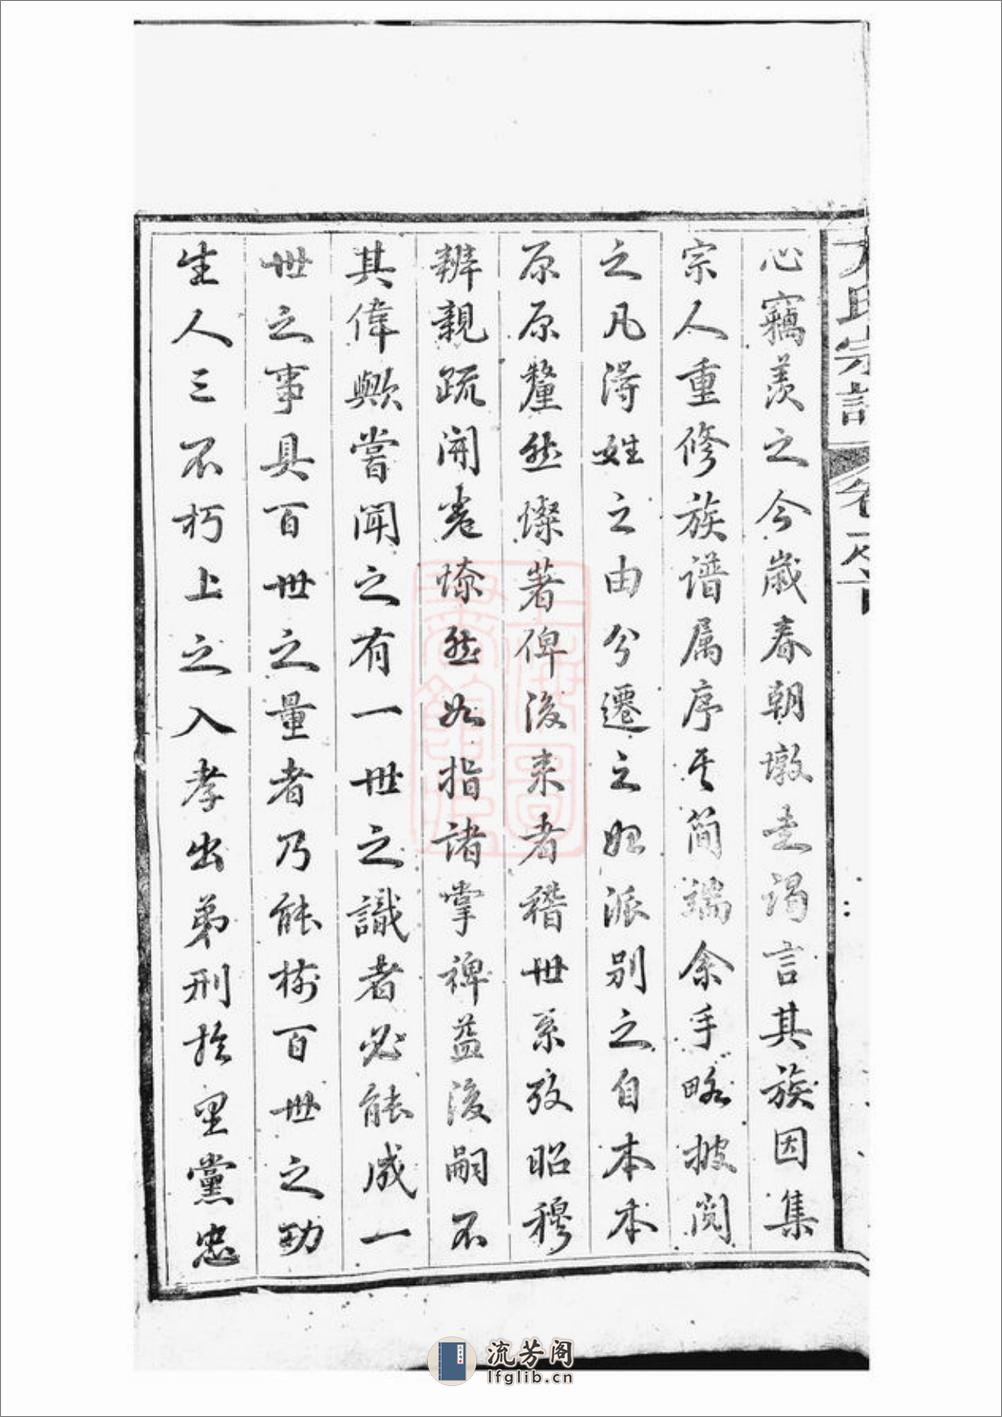 心竊羨之今歲春朝墩走謁言其族因集
宗人重修族谱属序其简端余手略披阅
之凡得姓之由分遷之始派别之自本本
原原釐然燦著俾後来者稽世系攷昭穆
辨親疏開卷燎然如指諸掌裨益後嗣不
其偉歟嘗闻之有一世之識者必能成一
世之事具百世之量者乃能樹百世之功
生人三不朽上之入孝出弟刑於里黨忠
氏宗譜
流芳阁
lfglib.cn